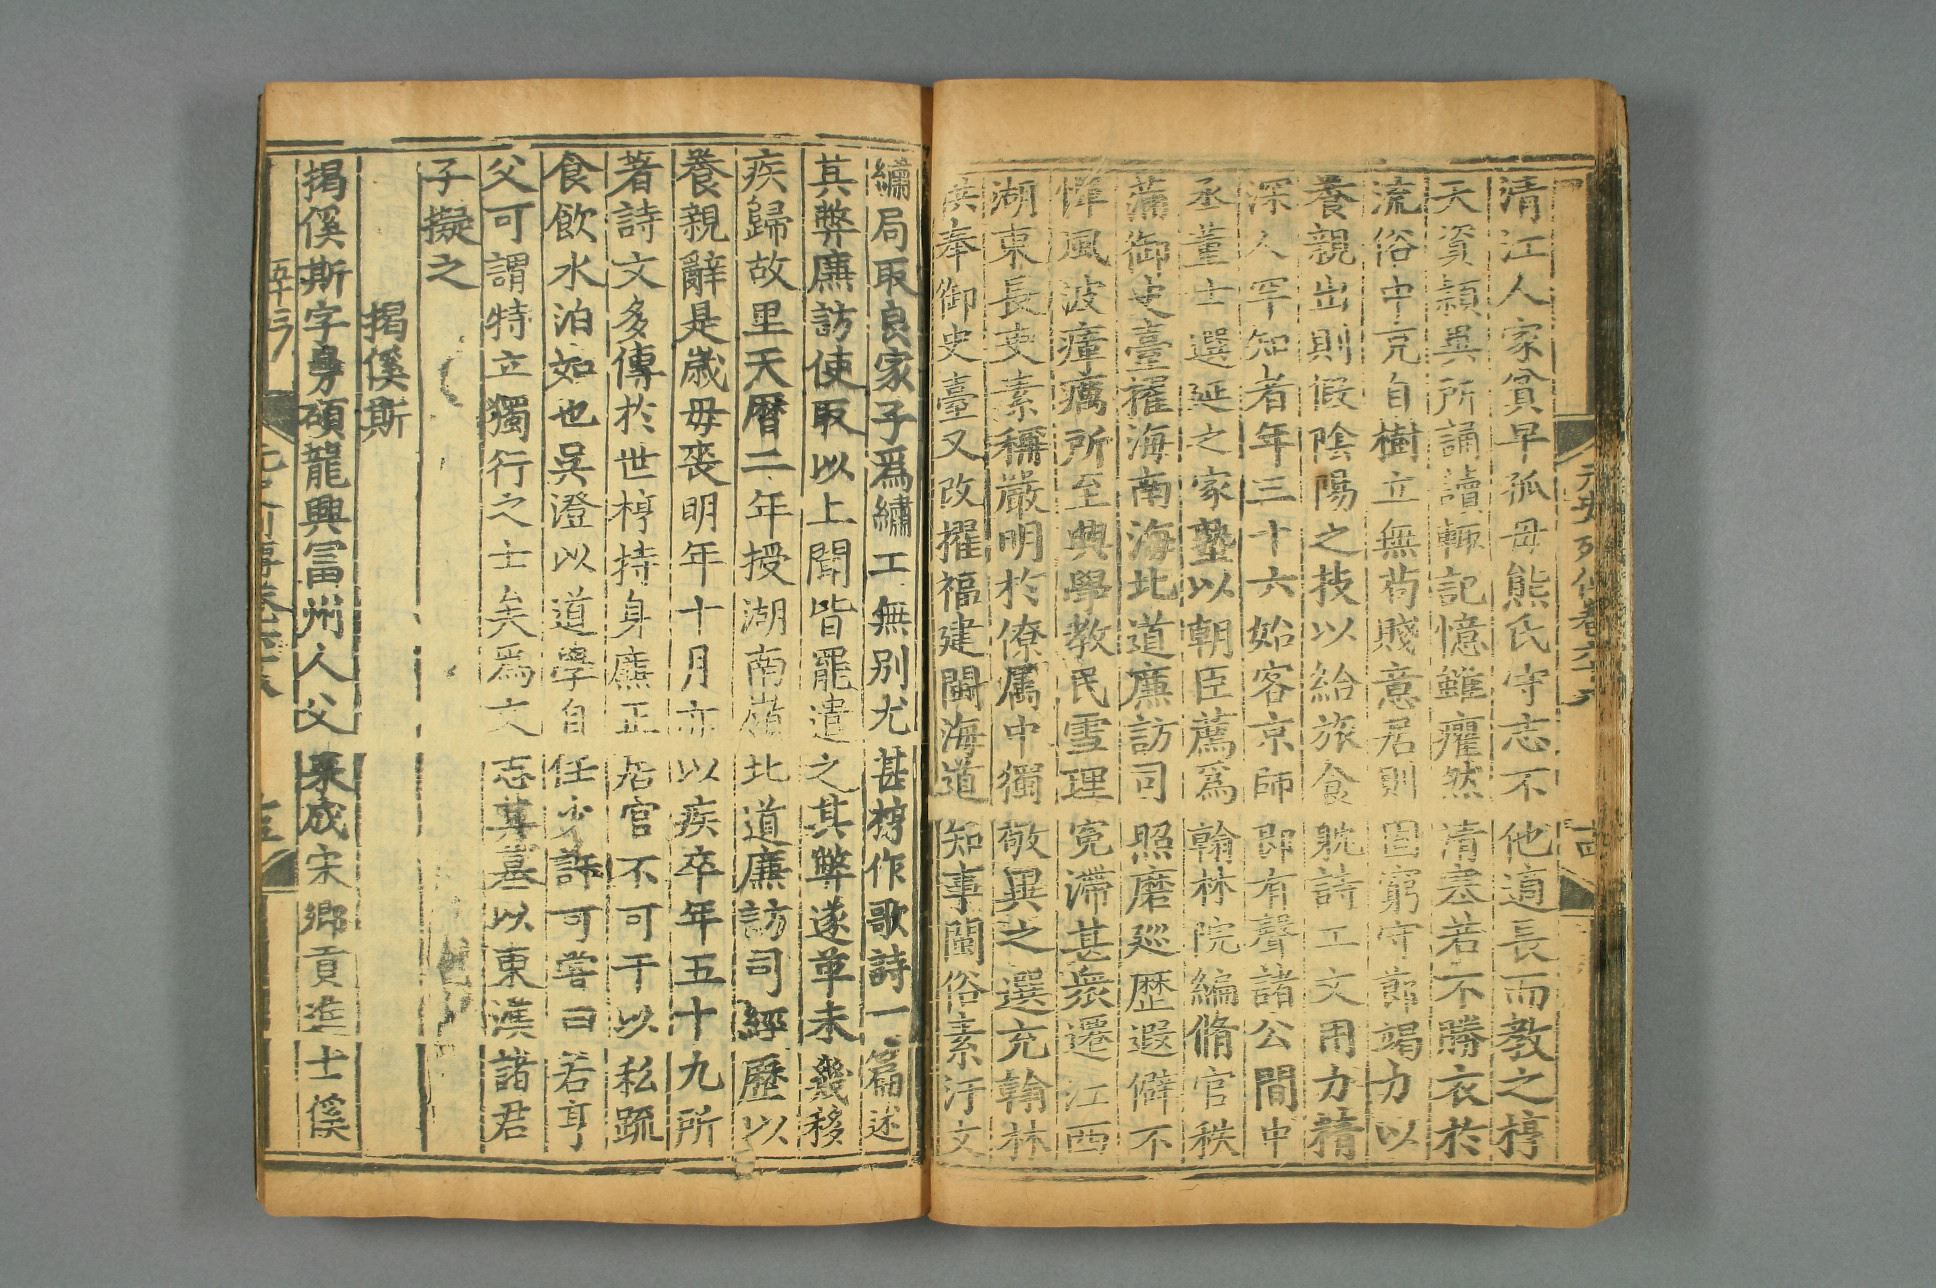 元史列傳卷六十八
十四
清江人家貧早孤母熊氏守志不他適長而教之梈
天資穎異所誦讀輒記憶雖癯然清寒若不勝衣於
流俗中克自樹立無苟賤意居則固窮守節竭力以
養親出則假陰陽之技以給旅食躭詩工文用力精
深人罕知者年三十六始客京師即有聲諸公間中
丞董士選延之家塾以朝臣薦爲翰林院編脩官秩
滿御史臺擢海南海北道廉訪司照磨巡歷遐僻不
憚風波瘴癘所至興學教民雪理冤滯甚衆遷江西
湖東長吏素稱嚴明於僚属中獨敬異之選充翰林
供奉御史臺又改擢福建閩海道知事閩俗素汙文
繡局取良家子爲繡工無别尤甚梈作歌詩一篇述
其弊廉訪使取以上聞皆罷遣之其弊遂革未幾移
疾歸故里天曆二年授湖南嶺北道廉訪司經歷以
養親辭是歲母喪明年十月亦以疾卒年五十九所
著詩文多傳於世梈持身廉正居官不可干以私疏
食飲水泊如也吳澄以道學自任少許可嘗曰若亨
父可謂特立獨行之士矣爲文志其墓以東漢諸君
子擬之
揭傒斯
揭傒斯字曼碩龍興冨州人父來成宋鄉貢進士傒